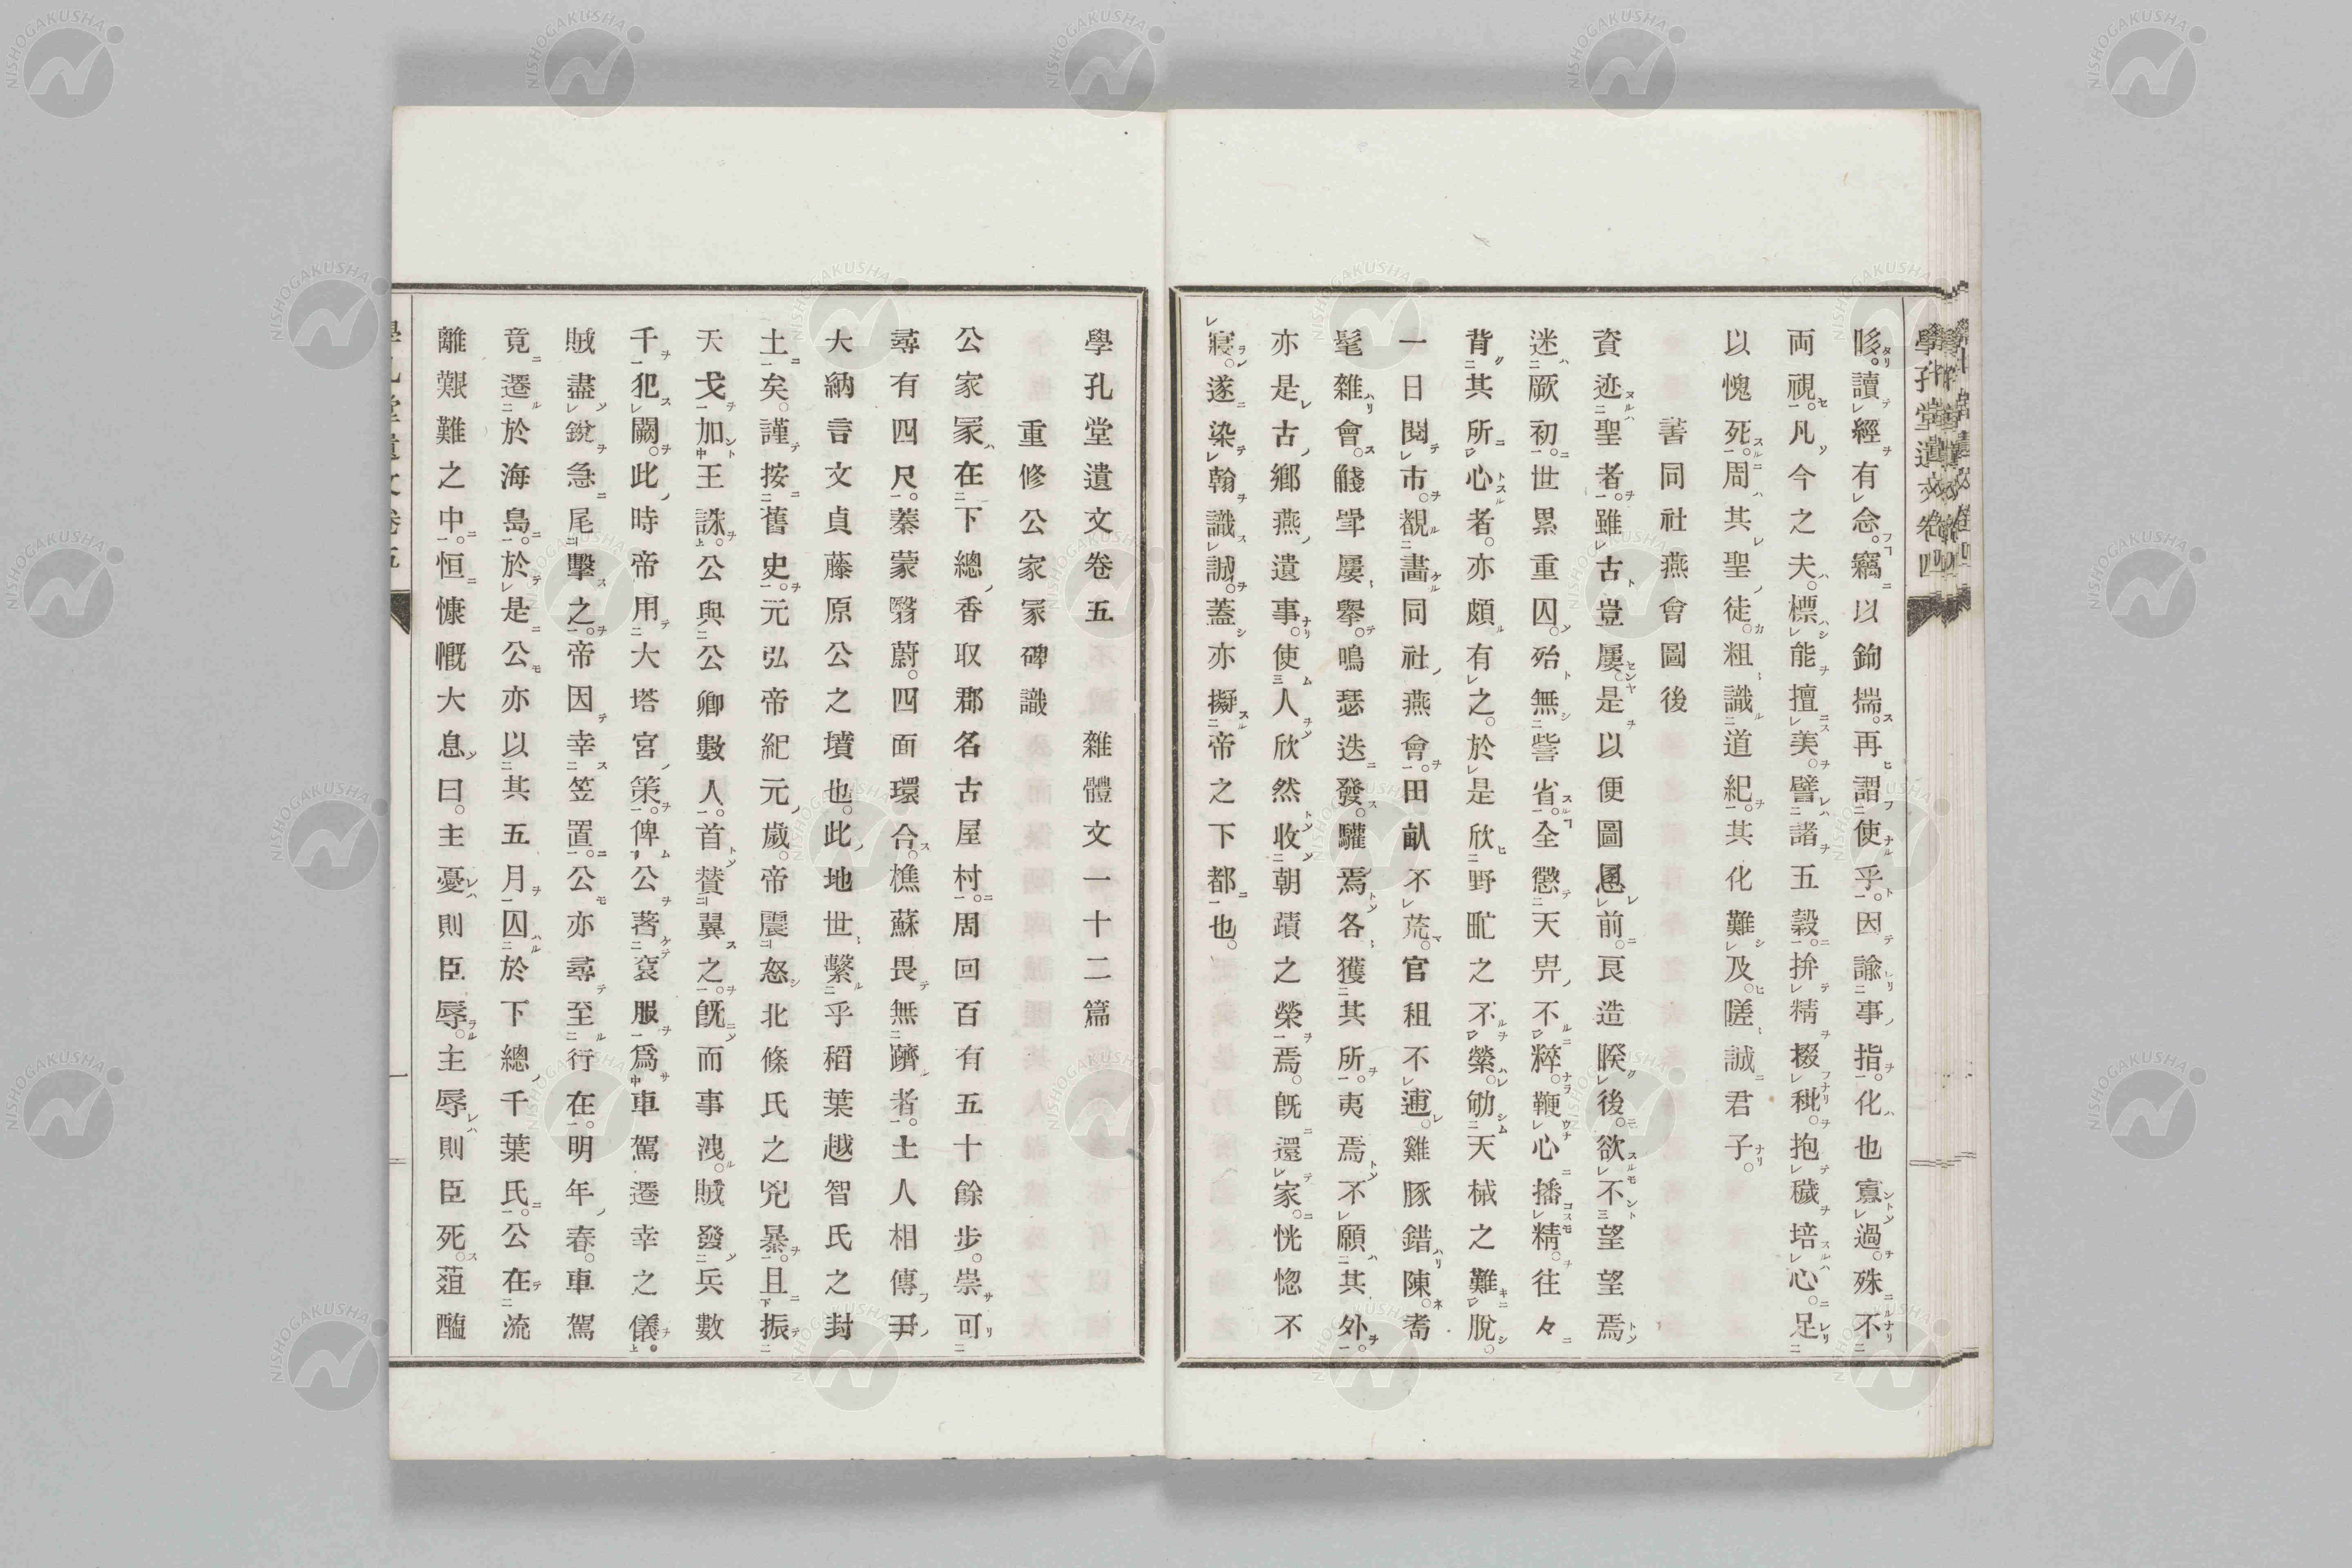 學孔堂遺文卷四
眵。讀經有念。竊以鉤揣。再謂使乎。因諭事指。化也寡過。殊不
両視。凡今之夫。標能擅美。譬諸五穀。拚精掇秕。抱穢培心。足
以愧死。周其聖徒。粗識道紀。其化難及。嗟誠君子。
書同社燕會圖後
資迹聖者。雖古豈屢。是以便圖恩前。良造睽後。欲不望望焉
迷厥初。世累重囚。殆無訾省。全懲天畀不粹。鞭心播精。往々
背其所心者。亦頗有之。於是欣野甿之不榮。劬天械之難脫。
一日閱市。覩畵同社燕會。田畝不荒。官租不逋。雞豚錯陳。耆
髦雜會。觴斝屢擧。鳴瑟迭發。驩焉各獲其所。夷焉不願其外。
亦是古鄕燕遺事。使人欣然收朝蹟之榮焉。旣還家。恍惚不
寢。遂染翰識誠。蓋亦擬帝之下都也。
學孔堂遺文卷五　雜體文一十二篇
重修公家冢碑識
公家冢在下總香取郡名古屋村。周回百有五十餘步。崇可
尋有四尺。蓁蒙翳蔚。四面環合。樵蘇畏無躋者。土人相傳尹
大納言文貞藤原公之墳也。此地世繫乎稻葉越智氏之封
土矣。謹按舊史。元弘帝紀元歲。帝震怒北條氏之兇暴。且振
天戈加王誅。公與公卿數人。首贊翼之。旣而事洩。賊發兵數
千犯闕。此時帝用大塔宮策。俾公著袞服爲車駕遷幸之儀。
賊盡銳急尾擊之。帝因幸笠置。公亦尋至行在。明年春。車駕
竟遷於海島。於是公亦以其五月囚於下總千葉氏。公在流
離艱難之中。恒慷慨大息曰。主憂則臣辱。主辱則臣死。葅醢
學孔堂遺文卷五
一
NISHOGAKUSHA